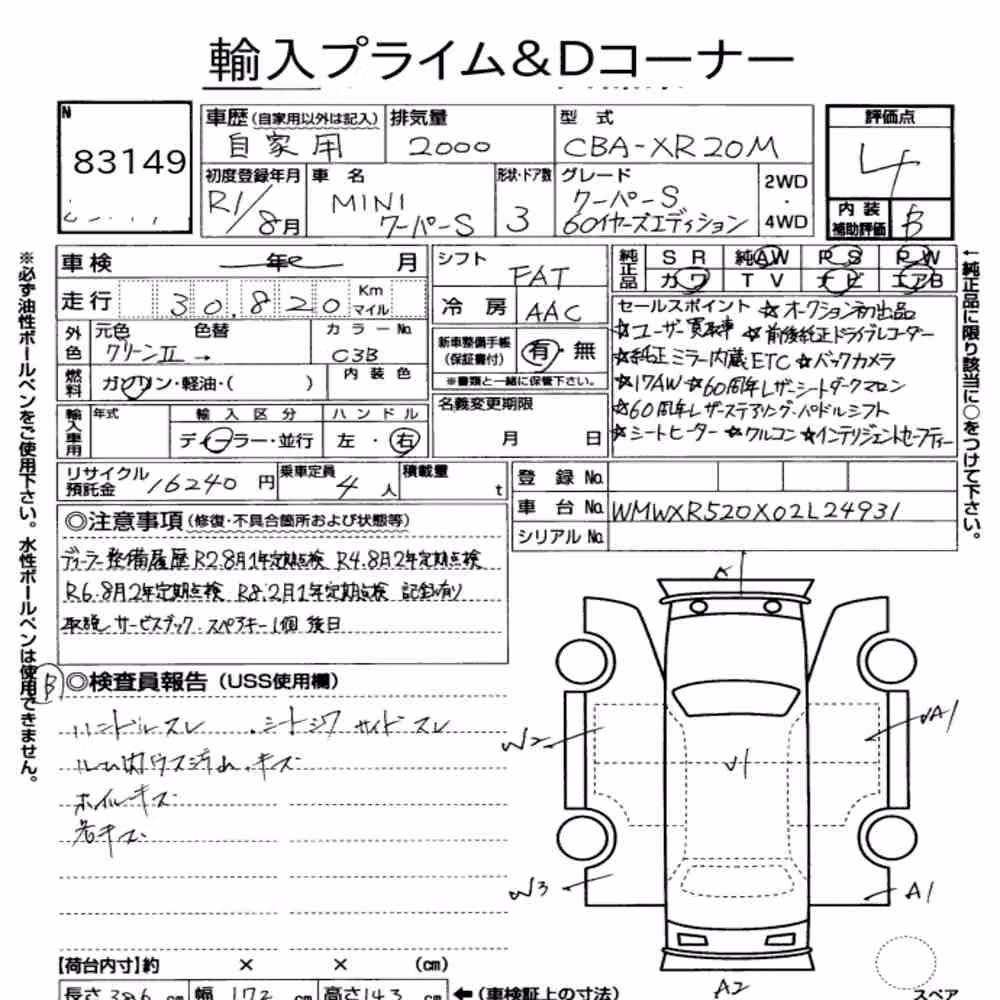 輸入プライム&Dコーナー
N
83149
車歴 (自家用以外は記入) 自家用
排気量 2000
型式 CBA-XR20M
評価点 4
初度登録年月 R1/8月
車名 MINI クーパーS
形状・ドア数 3
グレード クーパーS 60イヤーズエディション
2WD・4WD
内装補助評価 B
車検 年 月
走行 30,820 Km マイル
シフト FAT
冷房 AAC
純正品 SR 純AW PS PW
カワ TV ナビ エアB
外色 元色 グリーンII → 色替
カラーNo. C3B
燃料 ガソリン・軽油・( )
内装色
新車整備手帳(保証書付) 有・無
※書類と一緒に保管下さい。
輸入車用 年式
輸入区分 ディーラー・並行
ハンドル 左・右
名義変更期限
月 日
セールスポイント ☆オークション初出品
☆ユーザー買取車 ☆前後純正ドライブレコーダー
☆純正ミラー内蔵ETC ☆バックカメラ
☆17AW ☆60周年レザーシートダークマロン
☆60周年レザーステアリング・パドルシフト
☆シートヒーター ☆クルコン ☆インテリジェントセーフティー
リサイクル預託金 16240円
乗車定員 4人
積載量 t
登録No.
車台No. WMWXR520X02L24931
シリアルNo.
◎注意事項 (修復・不具合箇所および状態等)
ディーラー整備履歴 R2.8月1年定期点検 R4.8月2年定期点検
R6.8月2年定期点検 R8.2月1年定期点検 記録有り
取説 サービスブック スペアキー1個 後日
B
◎検査員報告 (USS使用欄)
ハンドルスレ ・シートシワ サイドスレ
ルーム内ウス汚れ・キズ
ホイルキズ
若キズ
※必ず油性ボールペンをご使用下さい。水性ボールペンは使用できません。
←純正品に限り該当に○をつけて下さい。
A
W2
UA1
U1
W3
A1
A2
【荷台内寸】約 × × (cm)
長さ 386 cm 幅 172 cm 高さ 143 cm ←(車検証上の寸法)
スペア